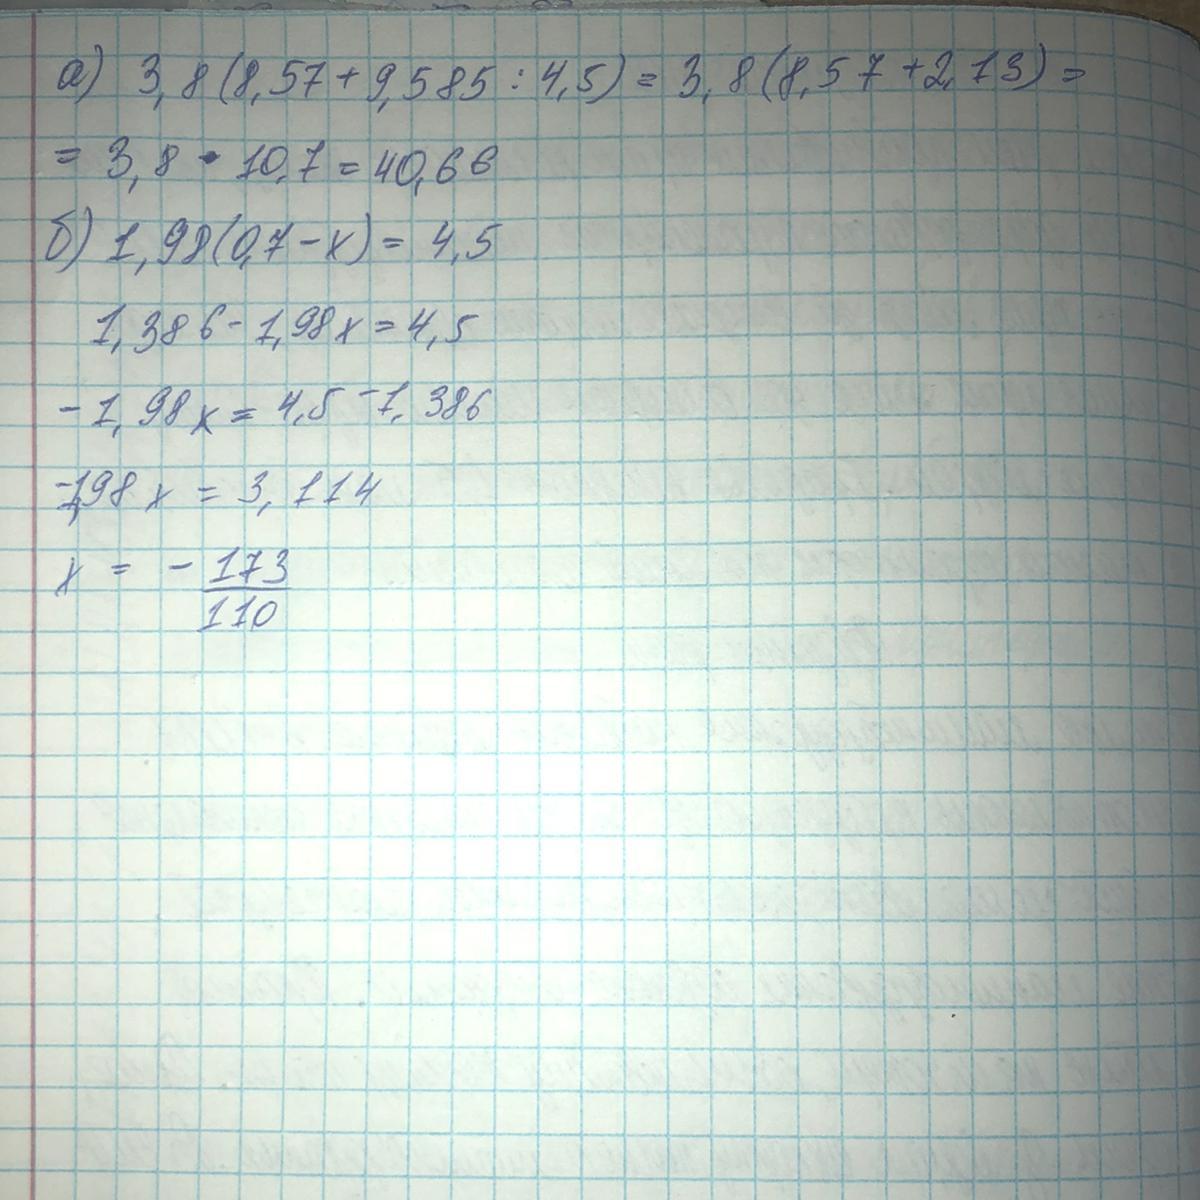 а) 3,8(8,57+9,585:4,5)=3,8(8,57+2,13)=
=3,8·10,7=40,66
б) 1,98(0,7-x)=4,5
1,386-1,98x=4,5
-1,98x=4,5-1,386
-1,98x=3,114
x = - 173/110